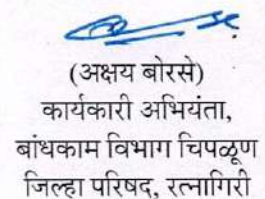 (अक्षय बोरसे)
कार्यकारी अभियंता,
बांधकाम विभाग चिपळूण
जिल्हा परिषद, रत्नागिरी